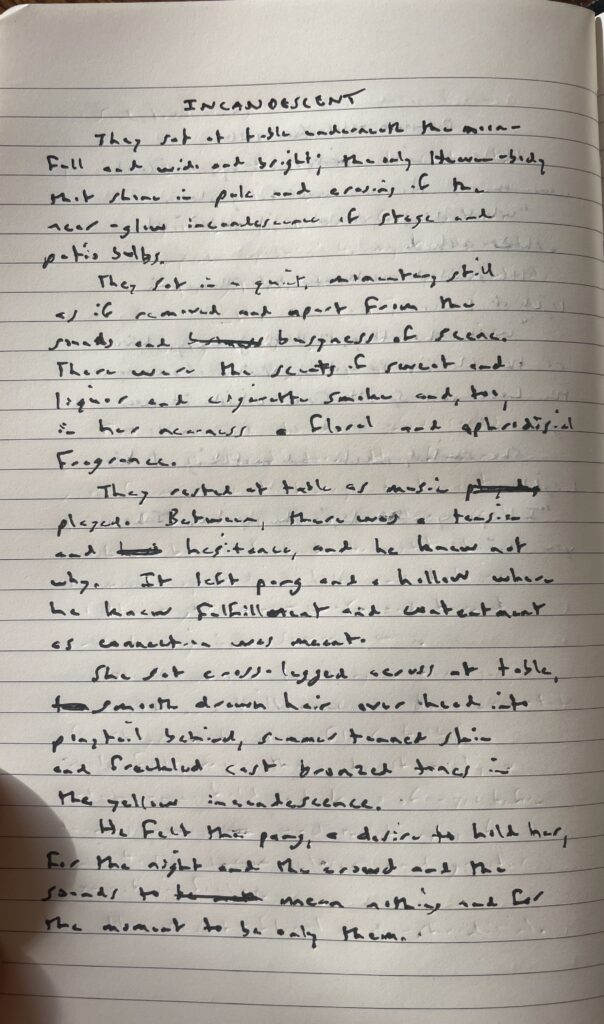 INCANDESCENT
They sat at table underneath the moon-
full and wide and bright; the only Heaven-body
that shone in pale and erasing of the
near-glow incandescence of stage and
patio bulbs.
They sat in a quiet, momentary still
as if removed and apart from the
sounds and busyness of scene.
There were the scents of sweat and
liquor and cigarette smoke and, too,
in her nearness a floral and aphrodisial
fragrance.
They rested at table as music
played. Between, there was a tension
and hesitance, and he knew not
why. It left pang and a hollow where
he knew fulfillment and contentment
as connection was meant.
She sat cross-legged across at table,
smooth drawn hair over head into
ponytail behind, summer tanned skin
and freckled cast bronzed tones in
the yellow incandescence.
He felt this pang, a desire to hold her,
for the night and the crowd and the
sounds to mean nothing and for
the moment to be only them.